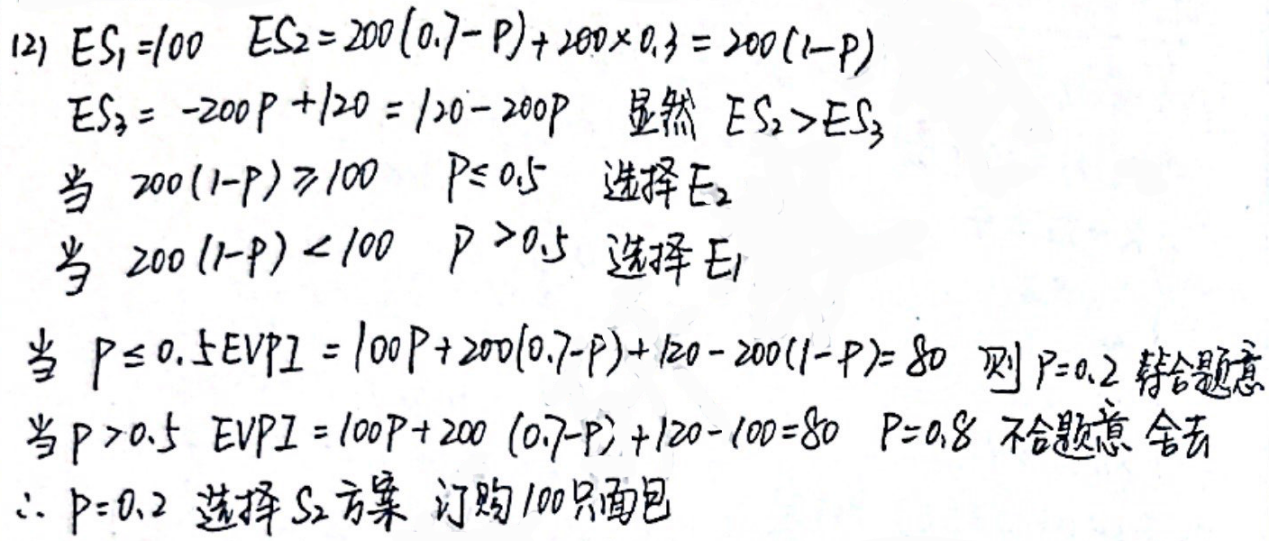 (2) ES₁=100 ES₂=200(0.7-P)+200×0.3=200(1-P)
ES₃=-200P+120=120-200P 显然 ES₂>ES₃
当 200(1-P)≥100 P≤0.5 选择E₂
当 200(1-P)<100 P>0.5 选择E₁
当 P≤0.5 EVPI=100P+200(0.7-P)+120-200(1-P)=80 则P=0.2 符合题意
当P>0.5 EVPI=100P+200(0.7-P)+120-100=80 P=0.8 不合题意 舍去
∴ P=0.2 选择S₂方案 订购100只面包